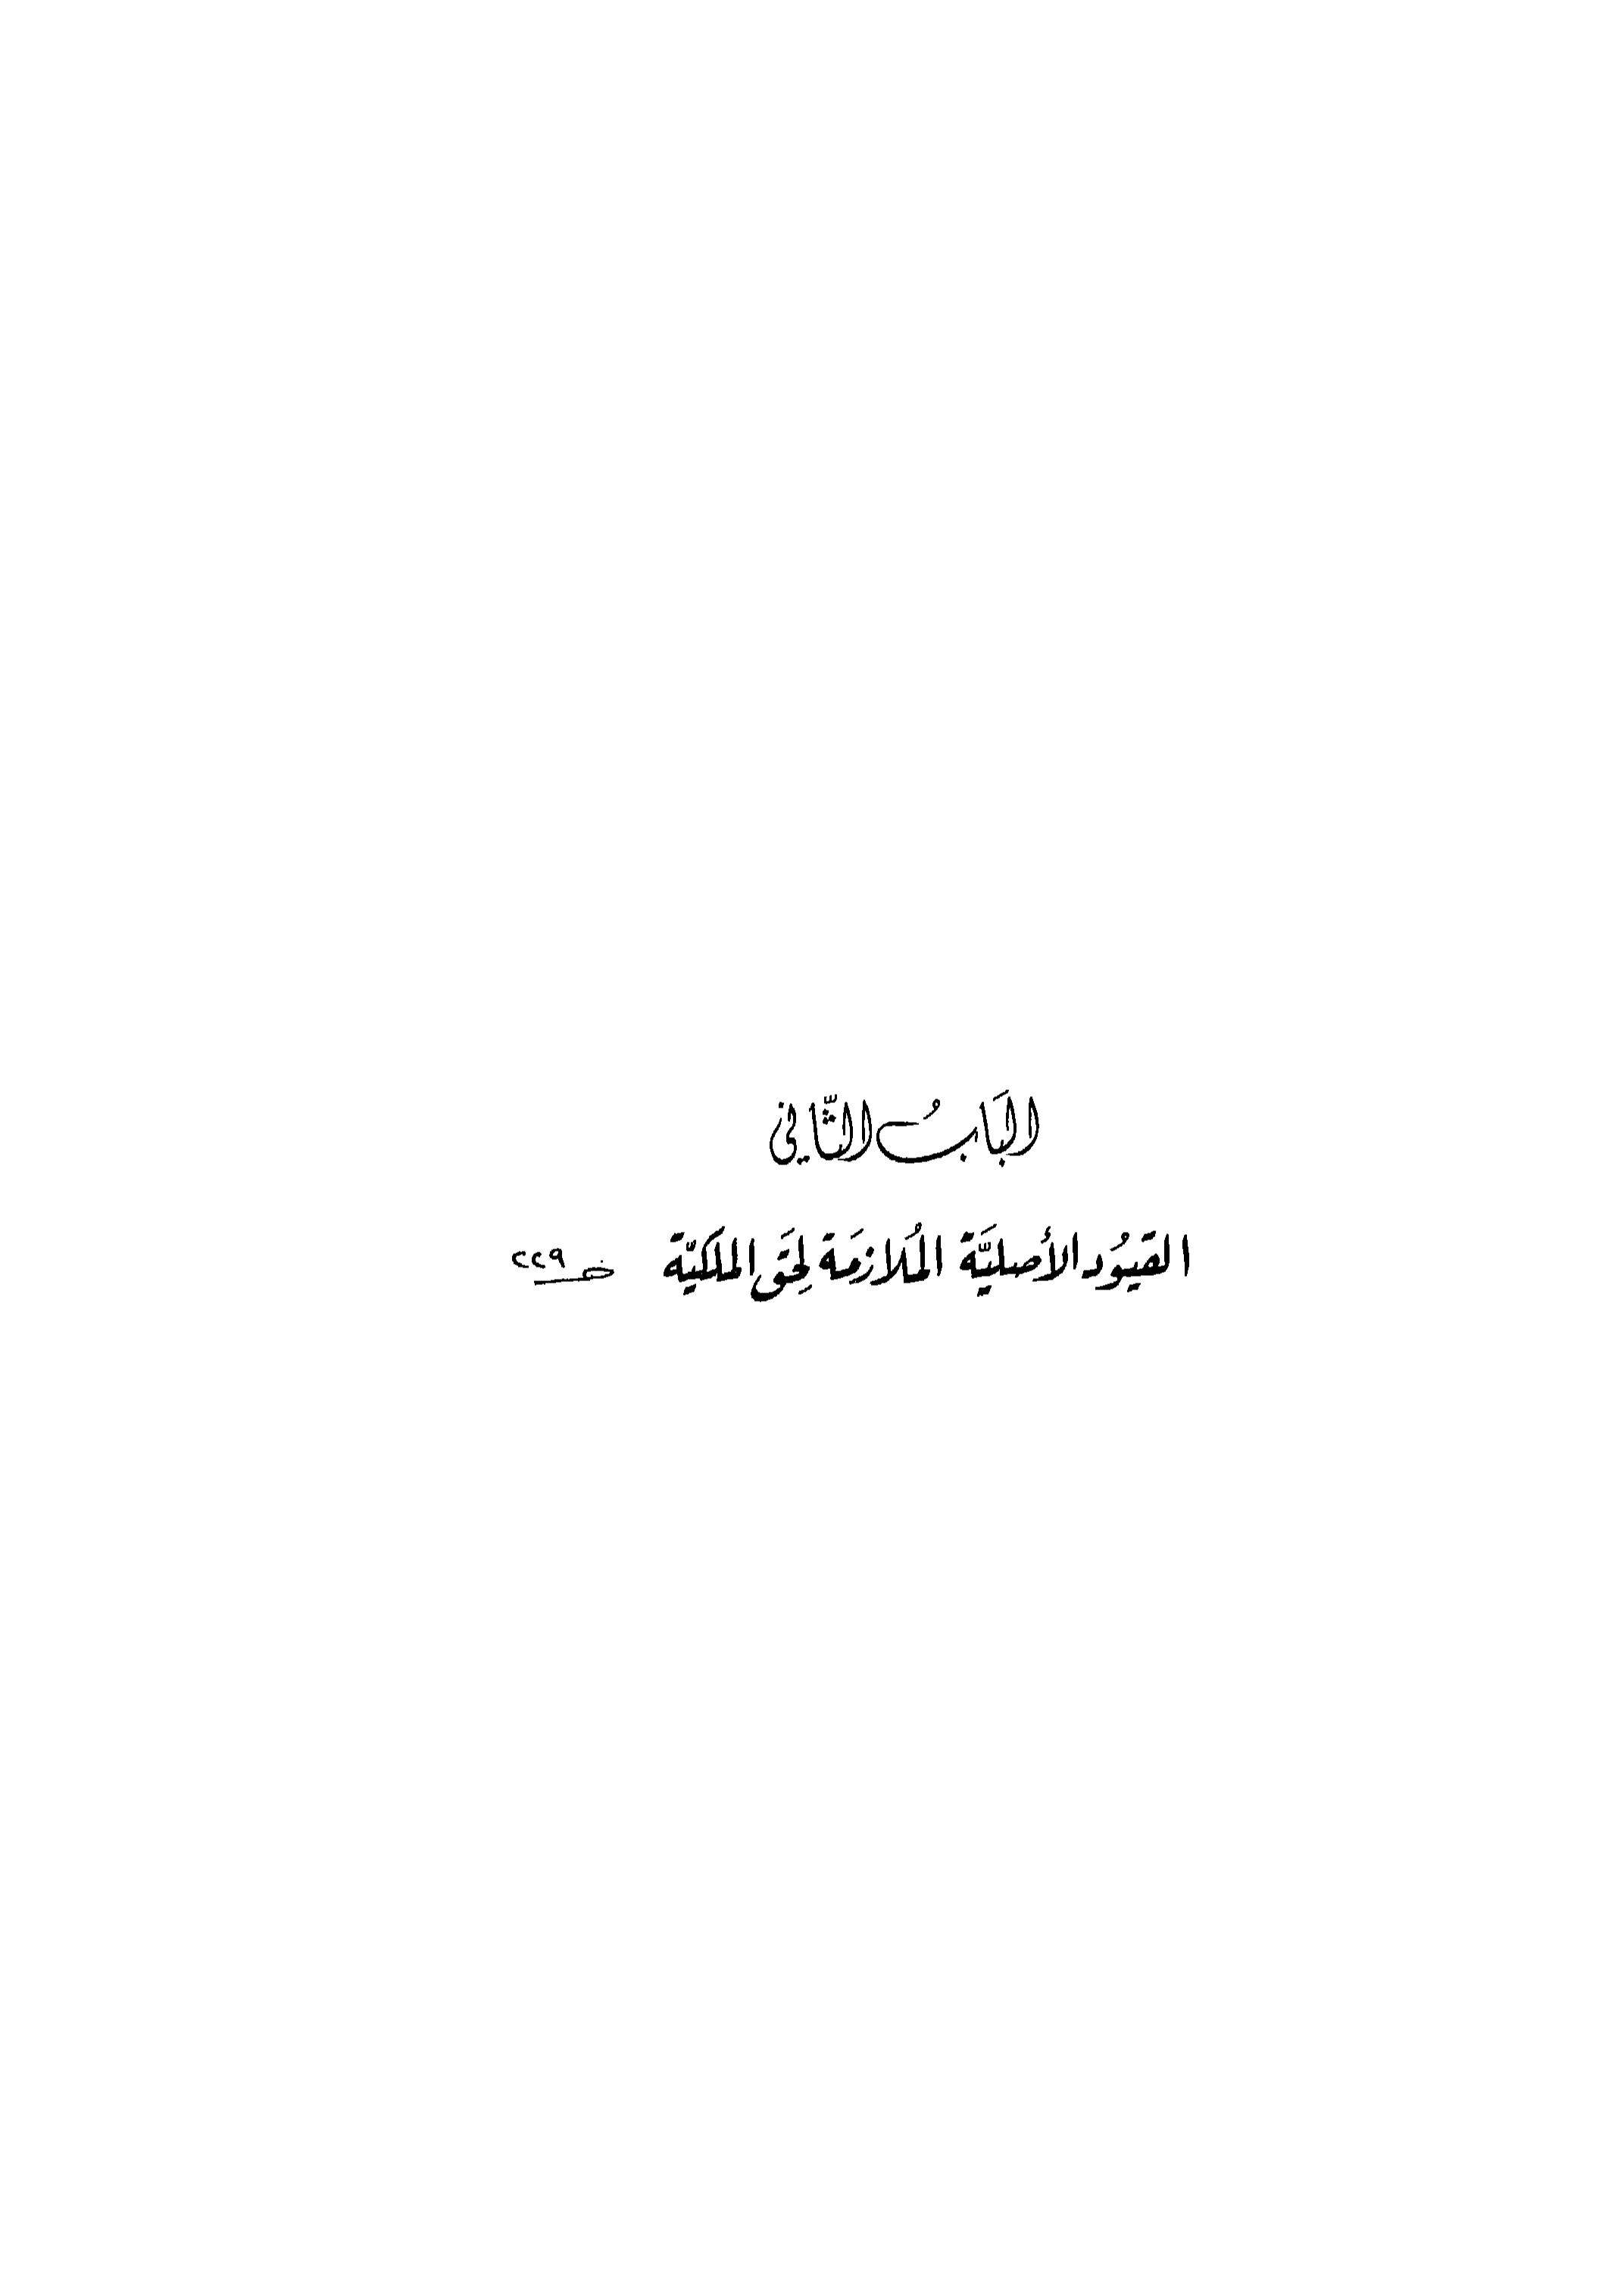 البَابُ الثَّاني
القيُود الأصليَّة المُلازمَة لِحَق الملكيَّة ٢٢٩